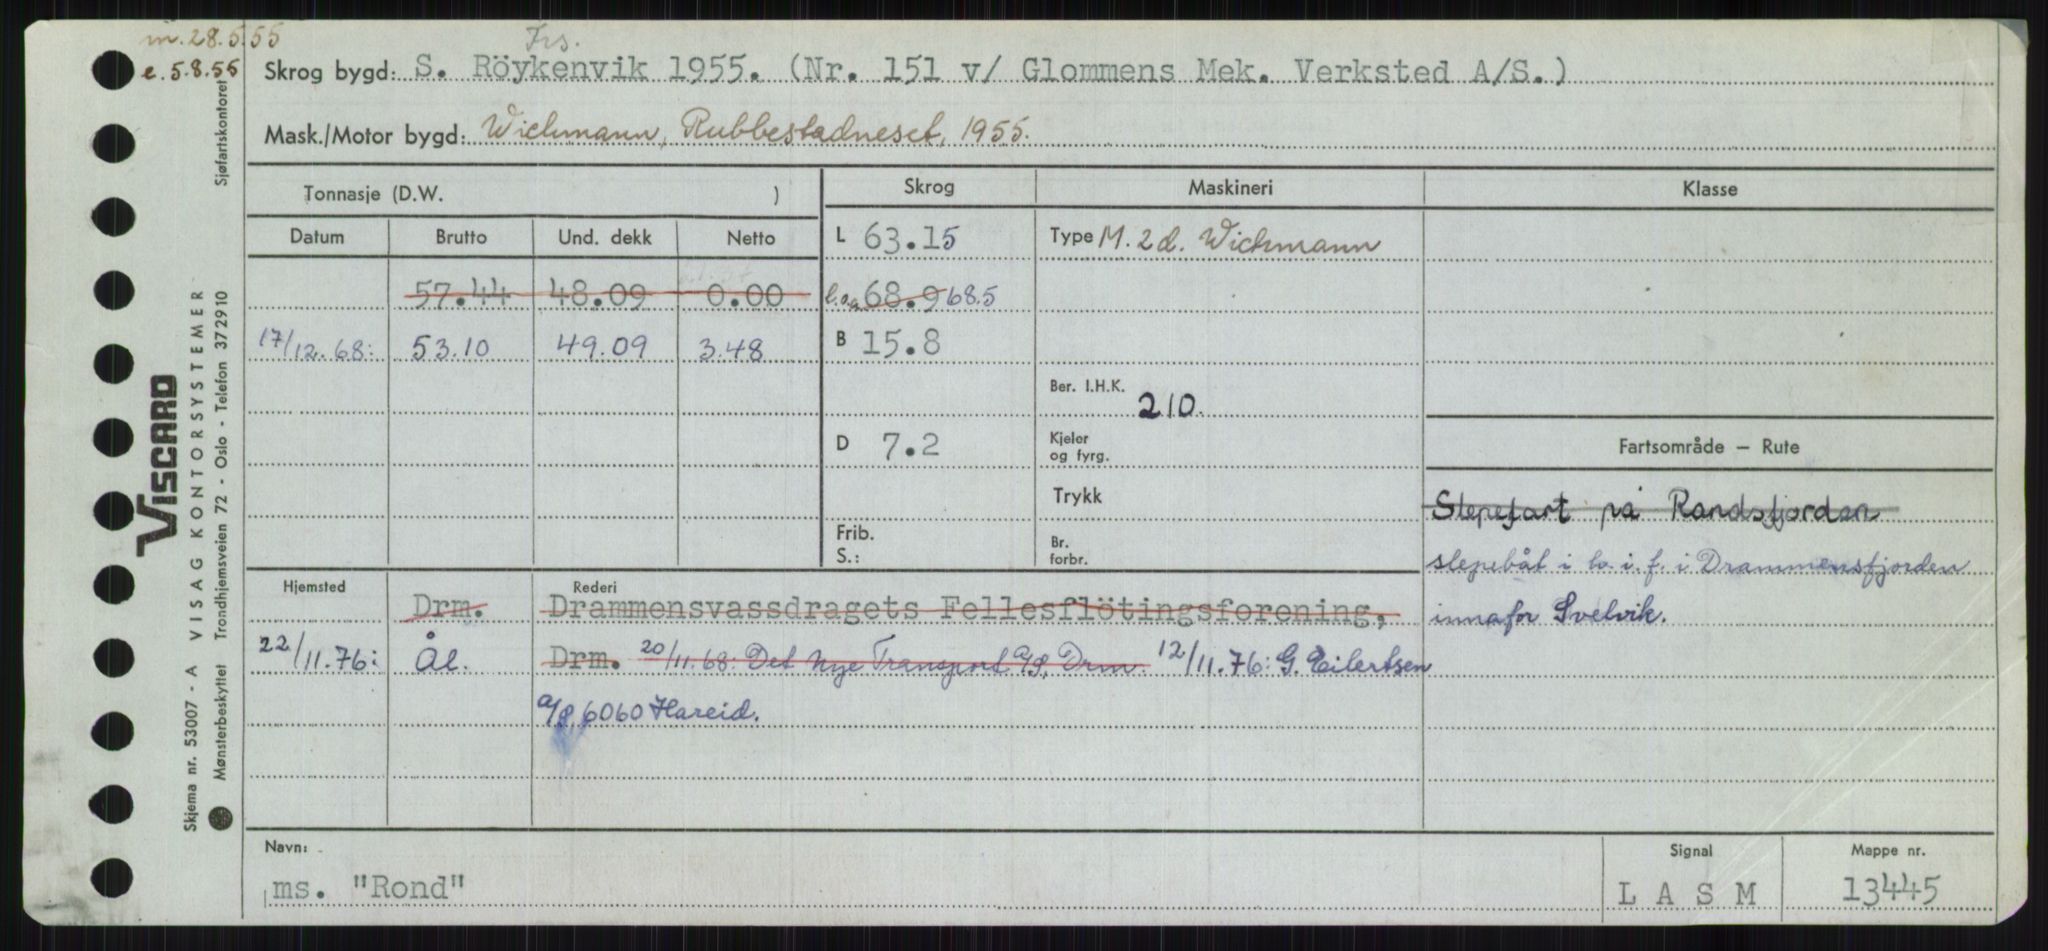 m. 28.5.55
e. 5.8.55
Frs.
Skrog bygd: S. Röykenvik 1955. (Nr. 151 v/ Glommens Mek. Verksted A/S.)
Mask./Motor bygd: Wichmann, Rubbestadneset, 1955.
Tonnasje (D.W. )
Skrog
Maskineri
Klasse
Datum Brutto Und. dekk Netto
L 63.15
Type M. 2d. Wichmann
57.44 48.09 0.00
l.o.a 68.9 68.5
17/12.68: 53.10 49.09 3.48
B 15.8
Ber. I.H.K. 210.
D 7.2
Kjeler
og fyrg.
Trykk
Frib.
S.:
Br.
forbr.
Fartsområde — Rute
Slepefart på Randsfjorden
slepebåt i l. i. f. i Drammensfjorden
innafor Svelvik.
Hjemsted
Rederi
Drm. Drammensvassdragets Fellesflötingsforening,
22/11.76: Ål. Drm. 20/11.68: Det nye Transport A/S, Drm. 12/11.76: G. Eilertsen
A/S, 6060 Hareid.
Navn:
ms. "Rond"
Signal
L A S M
Mappe nr.
13445
VISCARD
Skjema nr. 53007 - A VISAG KONTORSYSTEMER
Mønsterbeskyttet Trondhjemsveien 72 - Oslo - Telefon 372910 Sjøfartskontoret